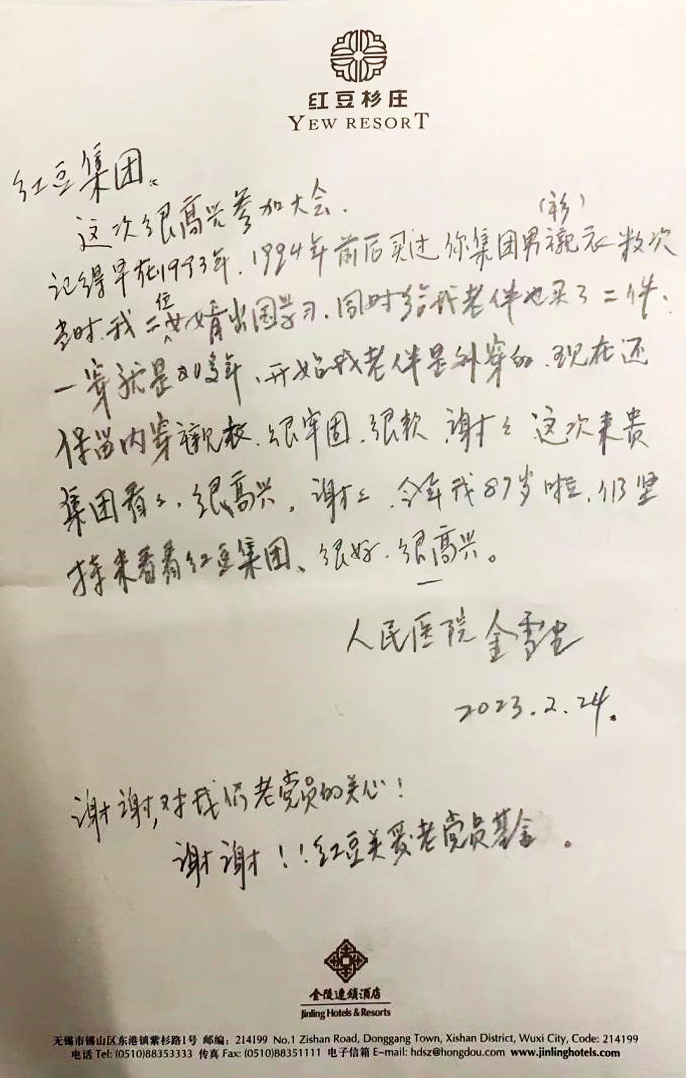 红豆杉庄
YEW RESORT
红豆集团:
这次很高兴参加大会.
(衫)
记得早在1993年.1994年前后买过你集团男衬衣数次
位
当时.我二女婿出国学习.同时给我老伴也买了二件.
一穿就是20多年.开始我老伴是外穿的.现在还
保留内穿衬衣.很牢固.很软 谢谢 这次来贵
集团看看.很高兴.谢谢.今年我87岁啦.仍坚
持来看看红豆集团、很好.很高兴。
人民医院 金雪
2023.2.24.
谢谢,对我们老党员的关心!
谢谢!!红豆关爱老党员基金。
金陵连锁酒店
Jinling Hotels & Resorts
无锡市锡山区东港镇紫杉路1号 邮编: 214199 No.1 Zishan Road, Donggang Town, Xishan District, Wuxi City, Code: 214199
电话 Tel: (0510)88353333 传真 Fax: (0510)88351111 电子信箱 E-mail: hdsz@hongdou.com www.jinlinghotels.com